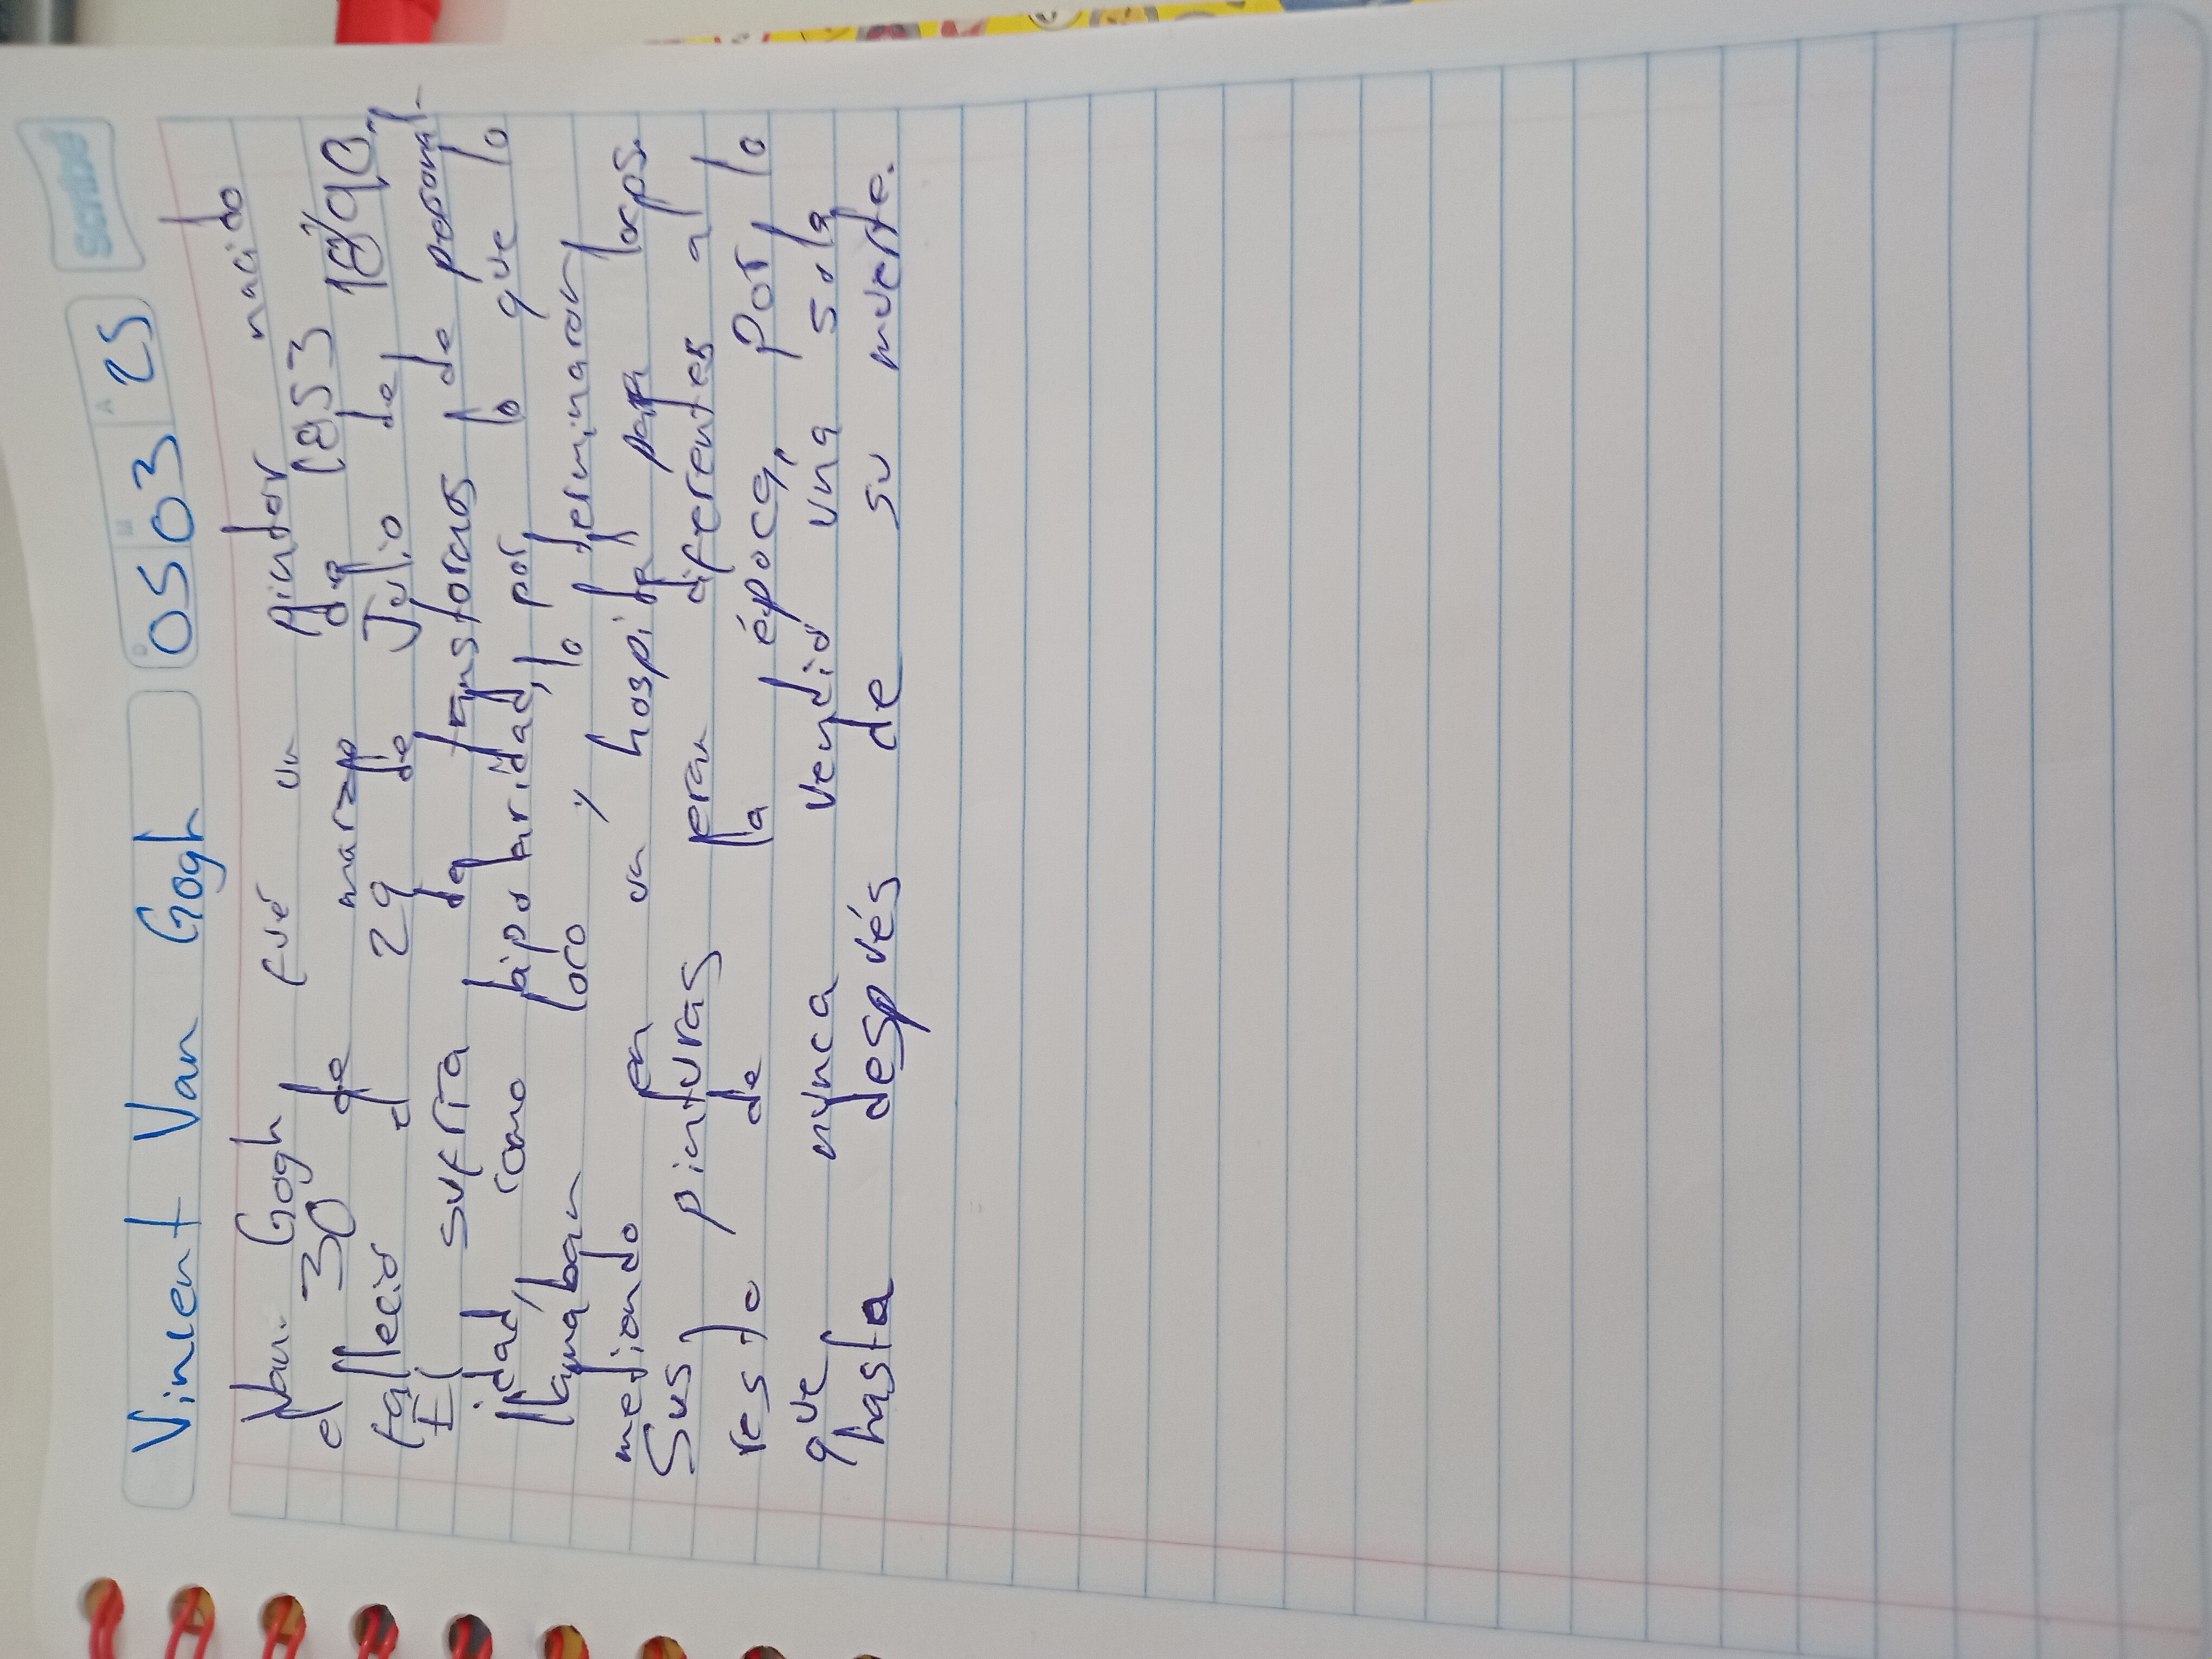 Scribe
Vincent Van Gogh 05 03 25
Van Gogh fué un pintor nacido
el 30 de marzo de 1853 y
falleció el 29 de Julio de 1890.
El sufría de transtornos de personal-
idad, como bipolaridad, por lo que lo
llamaban loco y lo terminaron
metiendo en un hospital para locos.
Sus pinturas eran diferentes al
resto de la época, por lo
que nunca vendió una sola
hasta después de su muerte.